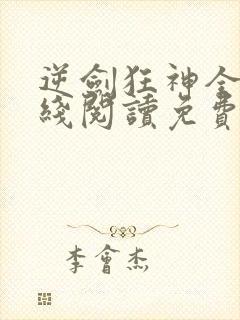 逆劍狂神全
綫閱讀免費
李會杰